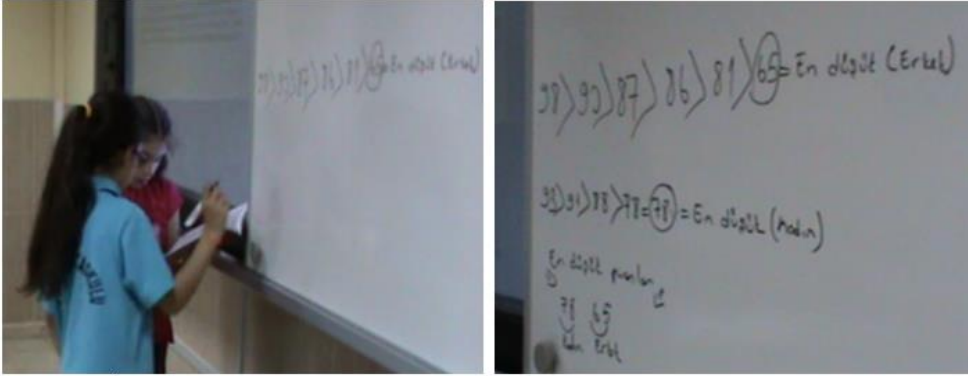 En düşük (Erkek)
98>93>87>86>81>65=En düşük (Erkek)
98>91>88>78=78=En düşük (Kadın)
En düşük puanları
78 65
Kadın Erkek